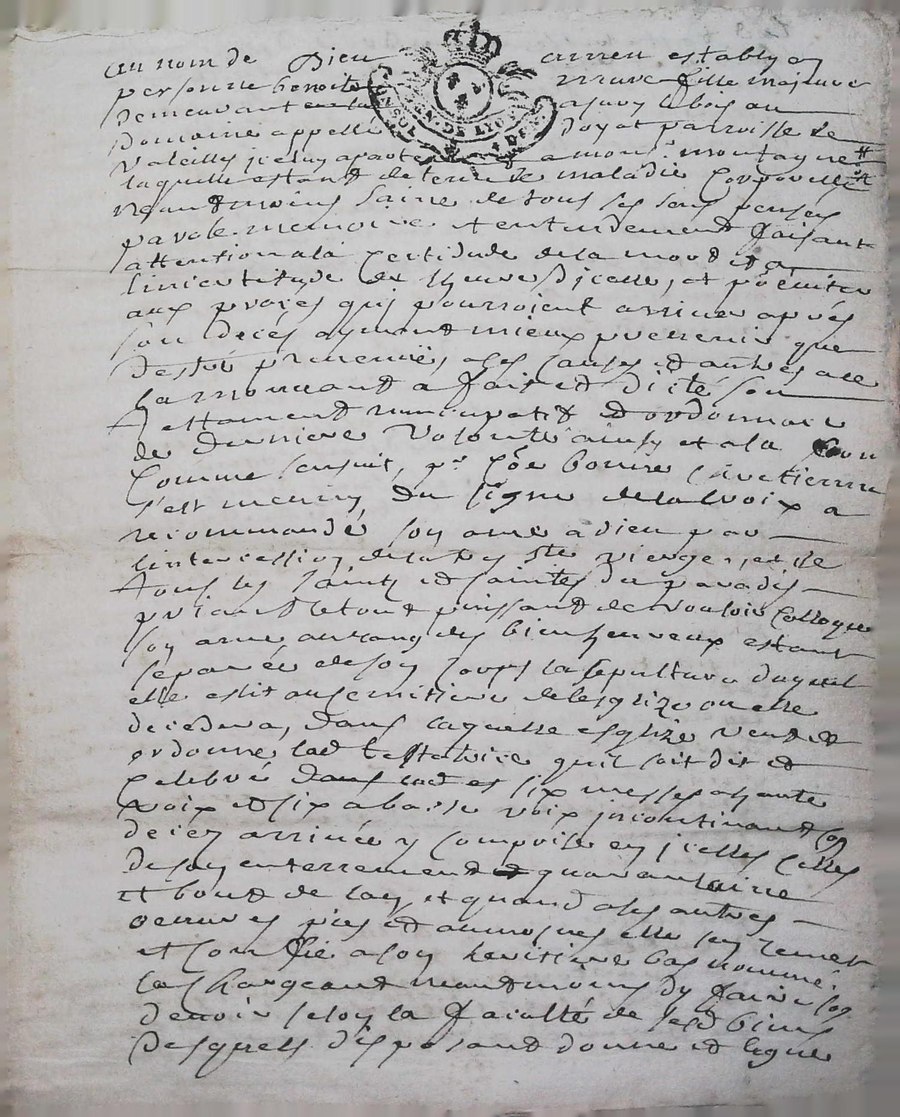 au nom de Dieu amen establye en
personne benoite mure fille majeure
demeurant en la a jury le bois au
Domaine appellé Doyat parroisse de
Valeilly jceluy apartenant a monr. montagne
laquelle estand detenue de maladie Corporelle
neandmoins saine de tous ses sens pensées
parole memoire et entendement faisant
attention a la Certitude de la mord et a
l'incertitude de l'heure d'jcelle, et pöeuiter
aux proces quj pourroient arriuer aprés
son decés aymant mieux preuenir que
destré preuenüe, a ces Causes et autres a ce
la mouuant a fait et dicté son
testament nuncupatif et ordonnance
de derniere Volonté ainsy et a la forme
Comme s'ensuit, pr. Cõe bonne Chretienne
s'est munie du signe de la Croix a
recommandé son ame a dieu par
l'intercession de la tres ste vierge, et de
tous les saints et saintes du paradis
priant le tout puissant de vouloir Colloquer
son ame au rang des bien heureux estant
separée de son Corps la sepulture duquel
elle eslit au cemitiere de l'esglize ou elle
decedera, dans laquelle esglize veut et
ordonne lad testatrice qu'il soit dit et
Celebré dans lad es six messes a haute
voix et six a basse voix jncontinand son
decez arriuée y Comprise en jcelles Celles
de son enterrement et quarantaine
et bout de lan, et quand a ses autres
oeuures pies et aumosnes elle s'en remet
et confie a son heritiere bas nommé,
la Chargeant neantmoins dy faire son
deuoir selon la faculté de sesd biens
Desquels disposant donne et legue